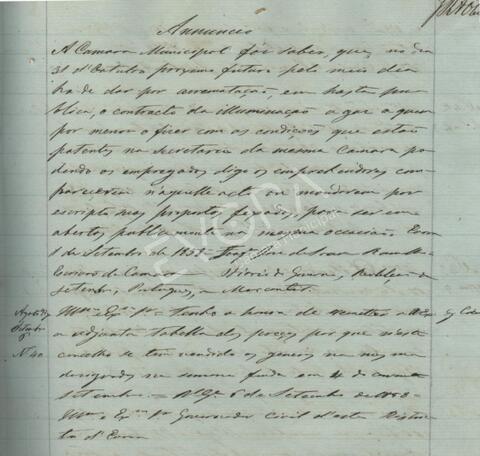 Annuncio
A Camara Municipal faz saber, que, no dia
31 d'Outubro proximo futuro pelo meio dia
ha de dar por arrematação, em hasta pu-
blica, o contracto da illuminação a gaz a quem
por menor o fizer com as condições que estão
patentes na Secretaria da mesma Camara po-
dendo os empregados digo os emprehendedores com-
parecerem n'aquelle acto ou mandarem por
escripto suas propostas fexadas, para serem
abertas publicamente na mesma occasião. Evora
1 de Setembro de 185
Escrivão da Camara Diario do Governo, Revolução de
Setembro, Portuguez, e
Setembro
Nº 40
Illmo Exmo Sr. tenho a honra de remetter a V Exa
a adjunta tabella dos preços por que n'este
concelho se tem vendido os generos na mesma
designados na semana finda em de
Setembro. Ds Ge 6 de Setembro de
Illmo e Exmo Sr Governador Civil d'este Distri-
to d'Evora
EVORA